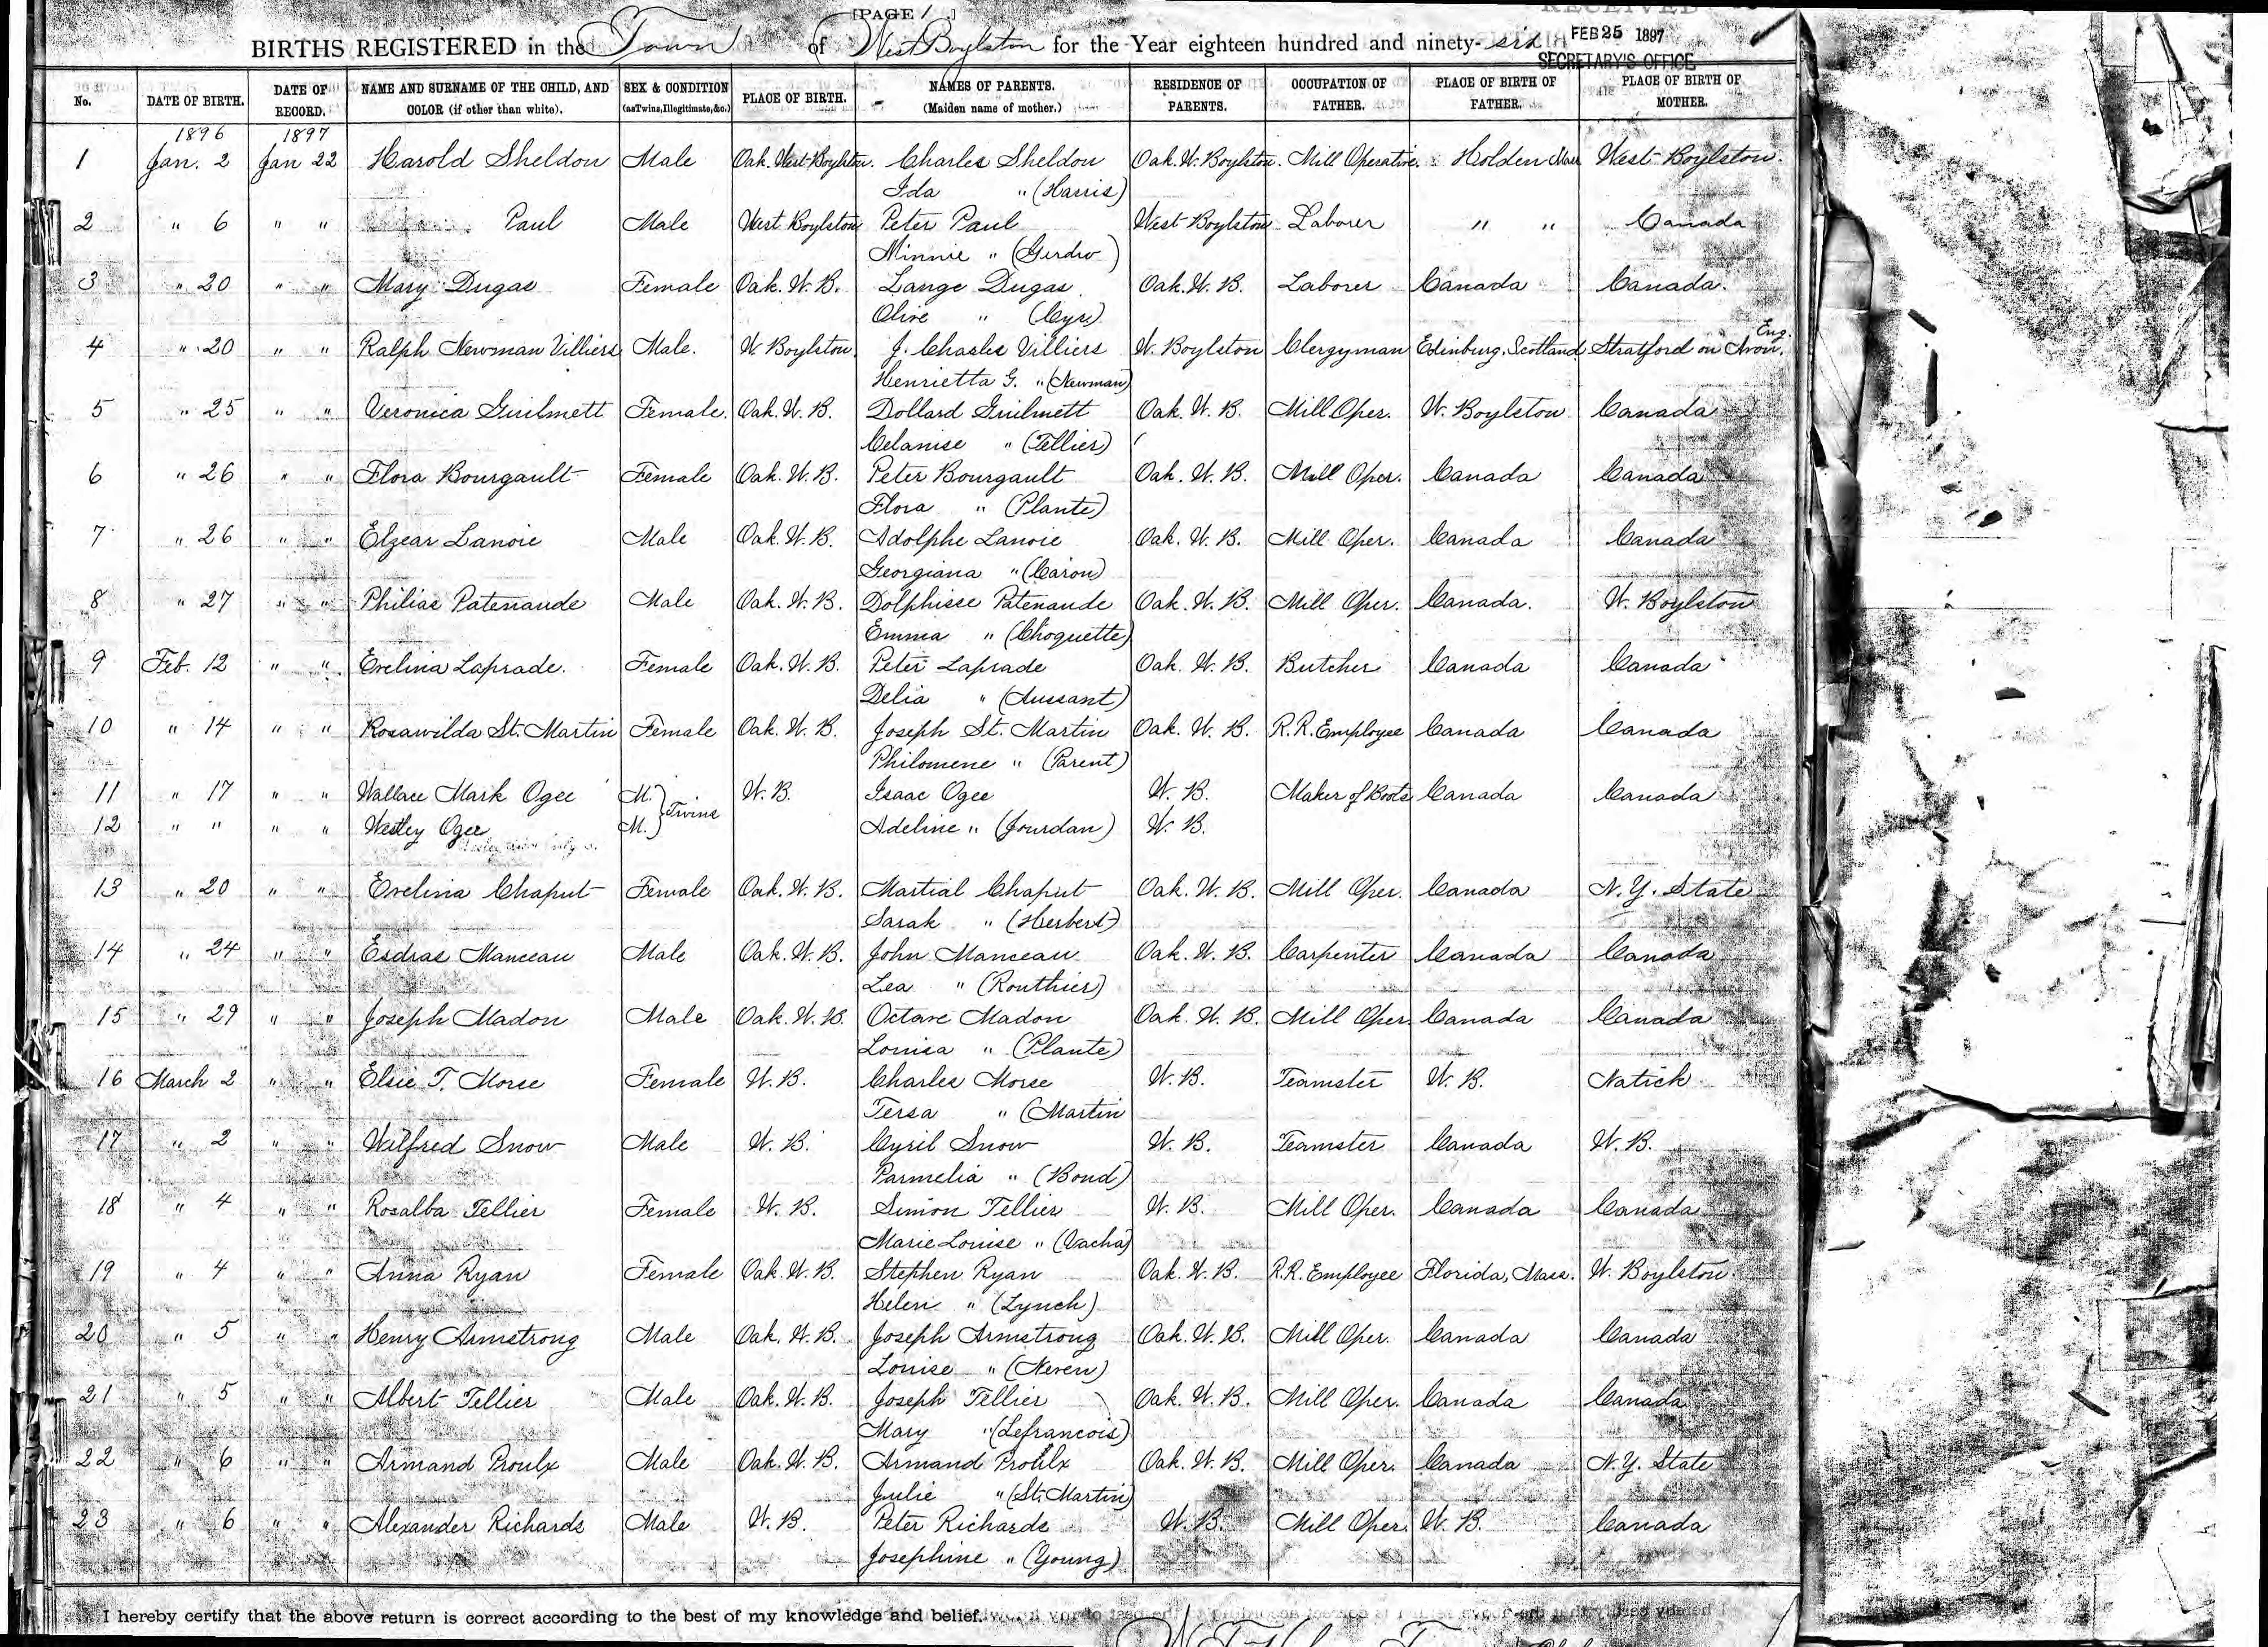 [PAGE 1 ]
RECEIVED
BIRTHS REGISTERED in the Town of West Boylston for the Year eighteen hundred and ninety-six
FEB 25 1897
SECRETARY'S OFFICE
No. DATE OF BIRTH. DATE OF RECORD. NAME AND SURNAME OF THE CHILD, AND COLOR (if other than white). SEX & CONDITION (as Twins, Illegitimate, &c.) PLACE OF BIRTH. NAMES OF PARENTS. (Maiden name of mother.) RESIDENCE OF PARENTS. OCCUPATION OF FATHER. PLACE OF BIRTH OF FATHER. PLACE OF BIRTH OF MOTHER.
1896 1897
1 Jan. 2 Jan 22 Harold Sheldon Male Oak. West Boylston. Charles Sheldon Oak. W. Boylston. Mill Operative. Holden Mass West Boylston.
Ida " (Harris)
2 " 6 " " Paul Male West Boylston Peter Paul West Boylston Laborer " " Canada
Minnie " (Girdro)
3 " 20 " " Mary Dugas Female Oak. W. B. Lange Dugas Oak. W. B. Laborer Canada Canada.
Olive " (Cyr)
4 " 20 " " Ralph Newman Villiers Male. W. Boylston. J. Charles Villiers W. Boylston Clergyman Edinburg, Scotland Stratford on Avon, Eng.
Henrietta G. " (Newman)
5 " 25 " " Veronica Guilmett Female. Oak. W. B. Dollard Guilmett Oak. W. B. Mill Oper. W. Boylston Canada
Celanise " (Tellier)
6 " 26 " " Flora Bourgault Female Oak. W. B. Peter Bourgault Oak. W. B. Mill Oper. Canada Canada
Flora " (Plante)
7 " 26 " " Elzear Lanoie Male Oak. W. B. Adolphe Lanoie Oak. W. B. Mill Oper. Canada Canada
Georgiana " (Caron)
8 " 27 " " Philias Patenaude Male Oak. W. B. Dolphisse Patenaude Oak. W. B. Mill Oper. Canada. W. Boylston
Emma " (Choquette)
9 Feb. 12 " " Evelina Laprade. Female Oak. W. B. Peter Laprade Oak. W. B. Butcher Canada Canada
Delia " (Aussant)
10 " 14 " " Rosawilda St. Martin Female Oak. W. B. Joseph St. Martin Oak. W. B. R.R. Employee Canada Canada
Philomene " (Parent)
11 " 17 " " Wallace Mark Ogee M. } Twins W. B. Isaac Ogee W. B. Maker of Boots Canada Canada
12 " " " " Westley Ogee M. Adeline " (Jourdan) W. B.
13 " 20 " " Evelina Chaput Female Oak. W. B. Martial Chaput Oak. W. B. Mill Oper. Canada N. Y. State
Sarah " (Herbert)
14 " 24 " " Esdras Manceau Male Oak. W. B. John Manceau Oak. W. B. Carpenter Canada Canada
Lea " (Routhier)
15 " 29 " " Joseph Madon Male Oak. W. B. Octave Madon Oak. W. B. Mill Oper. Canada Canada
Louisa " (Plante)
16 March 2 " " Elsie T. Morse Female W. B. Charles Morse W. B. Teamster W. B. Natick
Tersa " (Martin
17 " 2 " " Wilfred Snow Male W. B. Cyril Snow W. B. Teamster Canada W. B.
Parmelia " (Bond)
18 " 4 " " Rosalba Tellier Female W. B. Simon Tellier W. B. Mill Oper. Canada Canada
Marie Louise " (Vacha)
19 " 4 " " Anna Ryan Female Oak. W. B. Stephen Ryan Oak. W. B. R.R. Employee Florida, Mass. W. Boylston.
Helen " (Lynch)
20 " 5 " " Henry Armstrong Male Oak. W. B. Joseph Armstrong Oak. W. B. Mill Oper. Canada Canada
Louise " (Neven)
21 " 5 " " Albert Tellier Male Oak. W. B. Joseph Tellier Oak. W. B. Mill Oper. Canada Canada
Mary " (Lefrancois)
22 " 6 " " Armand Proulx Male Oak. W. B. Armand Proulx Oak. W. B. Mill Oper. Canada N. Y. State
Julie " (St. Martin)
23 " 6 " " Alexander Richards Male W. B. Peter Richards W. B. Mill Oper. W. B. Canada
Josephine " (Young)
I hereby certify that the above return is correct according to the best of my knowledge and belief.